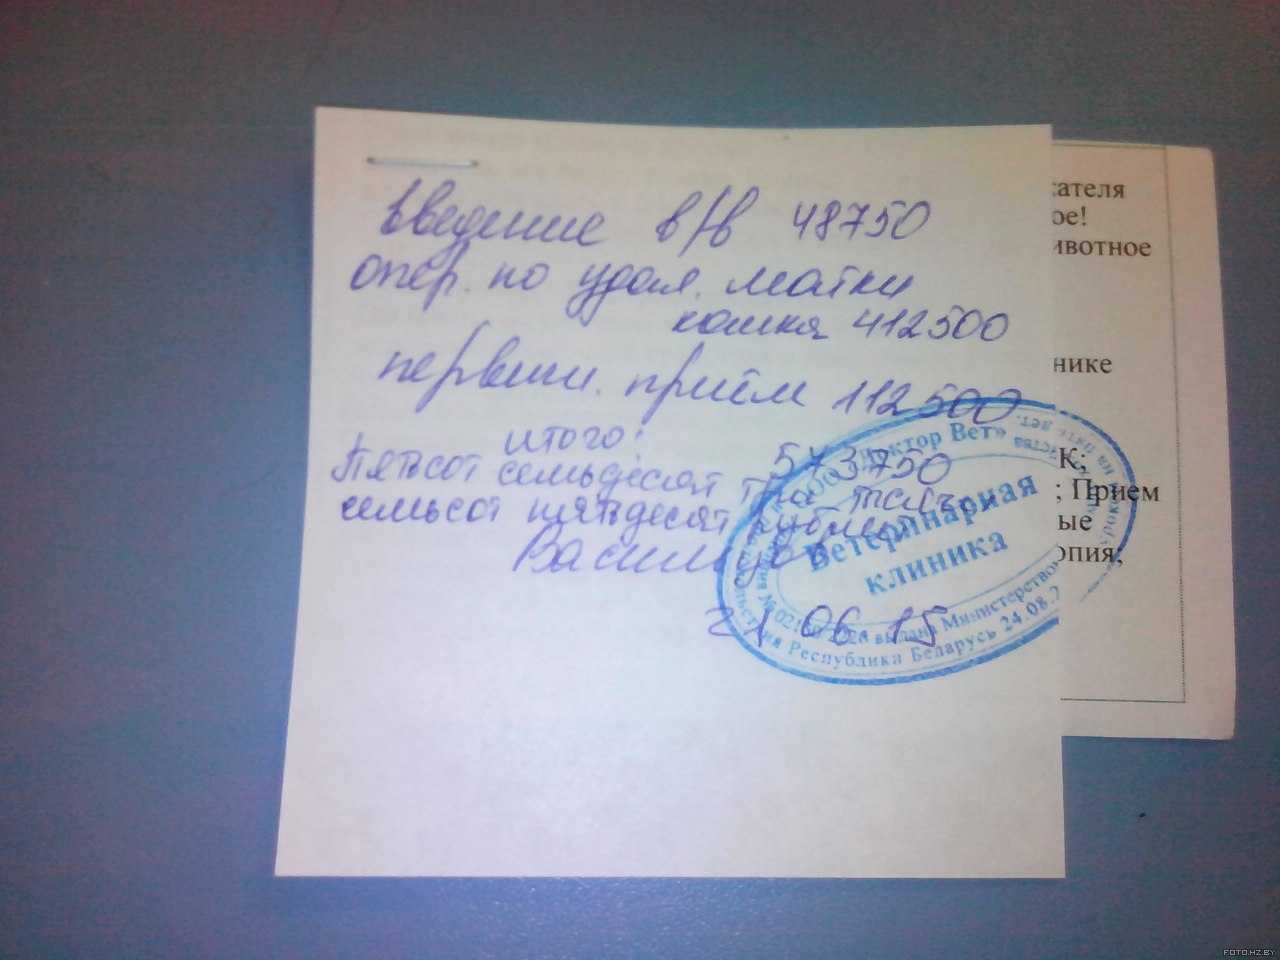 введение в/в 48750
опер. по удал. матки
кошка 412500
первичн. приём 112500
итого:
573750
Пятьсот семьдесят три тысячи
семьсот пятьдесят рублей
21 06 15
Доктор Вет»
Ветеринарная
клиника
выдана Министерство
Республики Беларусь 24.08.
сателя
ое!
ивотное
нике
К;
; Прием
ые
опия;
FOTO.HZ.BY